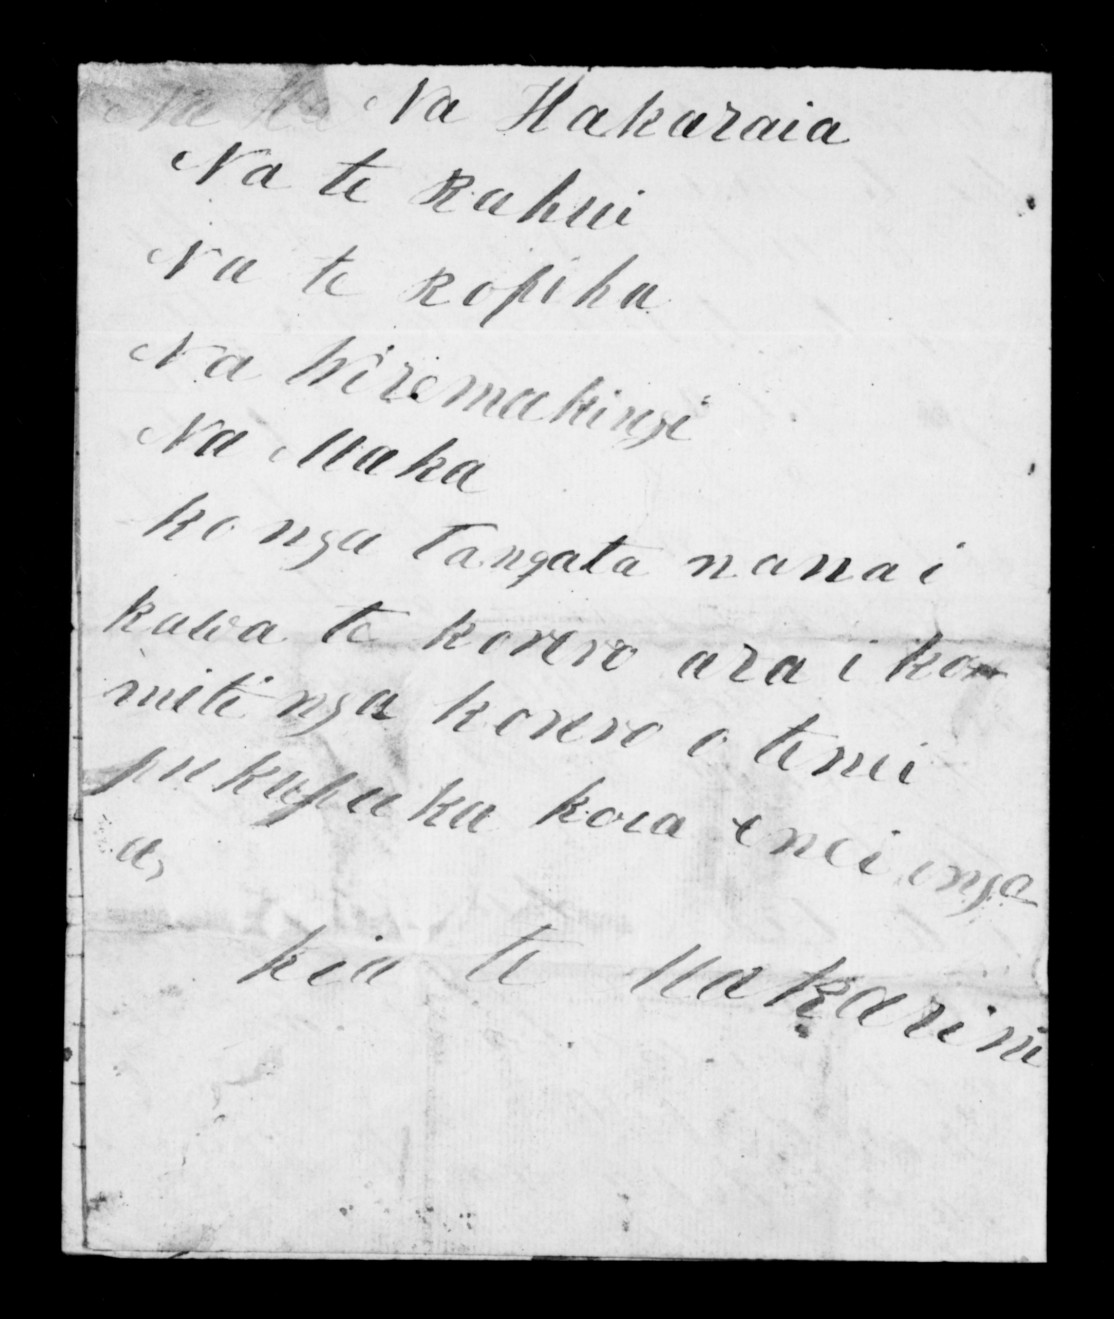 Na Ha Na Hakaraia
Na te Rahui
Na te Ropiha
Na Wiremakingi
Na Maka
ko nga Tangata nana i
kawa te korero ara i ko
miti nga korero o tenei
pukapuka koia enei inga
a,
kia te Makarini